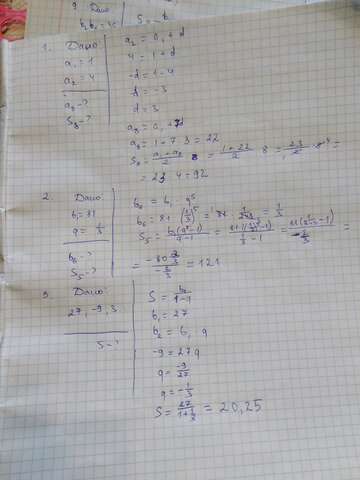 9. Дано
S = b
1. Дано
a₁ = 1
a₂ = 4
a₈ - ?
S₈ - ?
a₂ = a₁ + d
4 = 1 + d
-d = 1 - 4
-d = -3
d = 3
a₈ = a₁ + 7d
a₈ = 1 + 7 · 3 = 22
S₈ = (a₁ + a₈)/2 · 8 = (1 + 22)/2 · 8 = 23/2 · 8⁴ =
= 23 · 4 = 92
2. Дано
b₁ = 81
q = 1/3
b₆ - ?
S₅ - ?
b₆ = b₁ q⁵
b₆ = 81 · (1/3)⁵ = 81 · 1/243 = 1/3
S₅ = b₁(q⁵-1)/(q-1) =
= 121
3. Дано
27, -9, 3
S - ?
S = b₁/(1-q)
b₁ = 27
b₂ = b₁ q
-9 = 27q
q = -9/27
q = -1/3
S = 27/(1+1/3) = 20,25